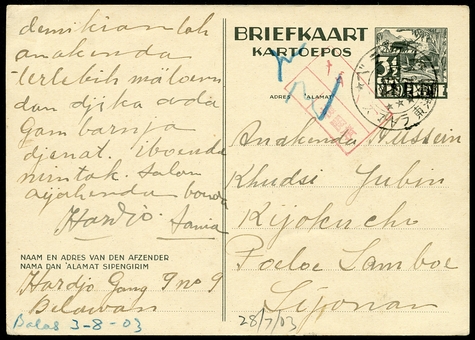 demikian lah
anakenda
terlebih
dan djika ada
gambarnja
djenat. iboenda
mintak. salam
ajahenda bonda
Hardjo.
NAAM EN ADRES VAN DEN AFZENDER
NAMA DAN ALAMAT SIPENGIRIM
Hardjo Gang 9 no 9
Belawan
Balas 3-8-03
BRIEFKAART
KARTOEPOS
ADRES
ALAMAT
3½
Anakenda Hussein
Khudsi Yubin
Kijokucho
Poeloe Samboe
28/7/03